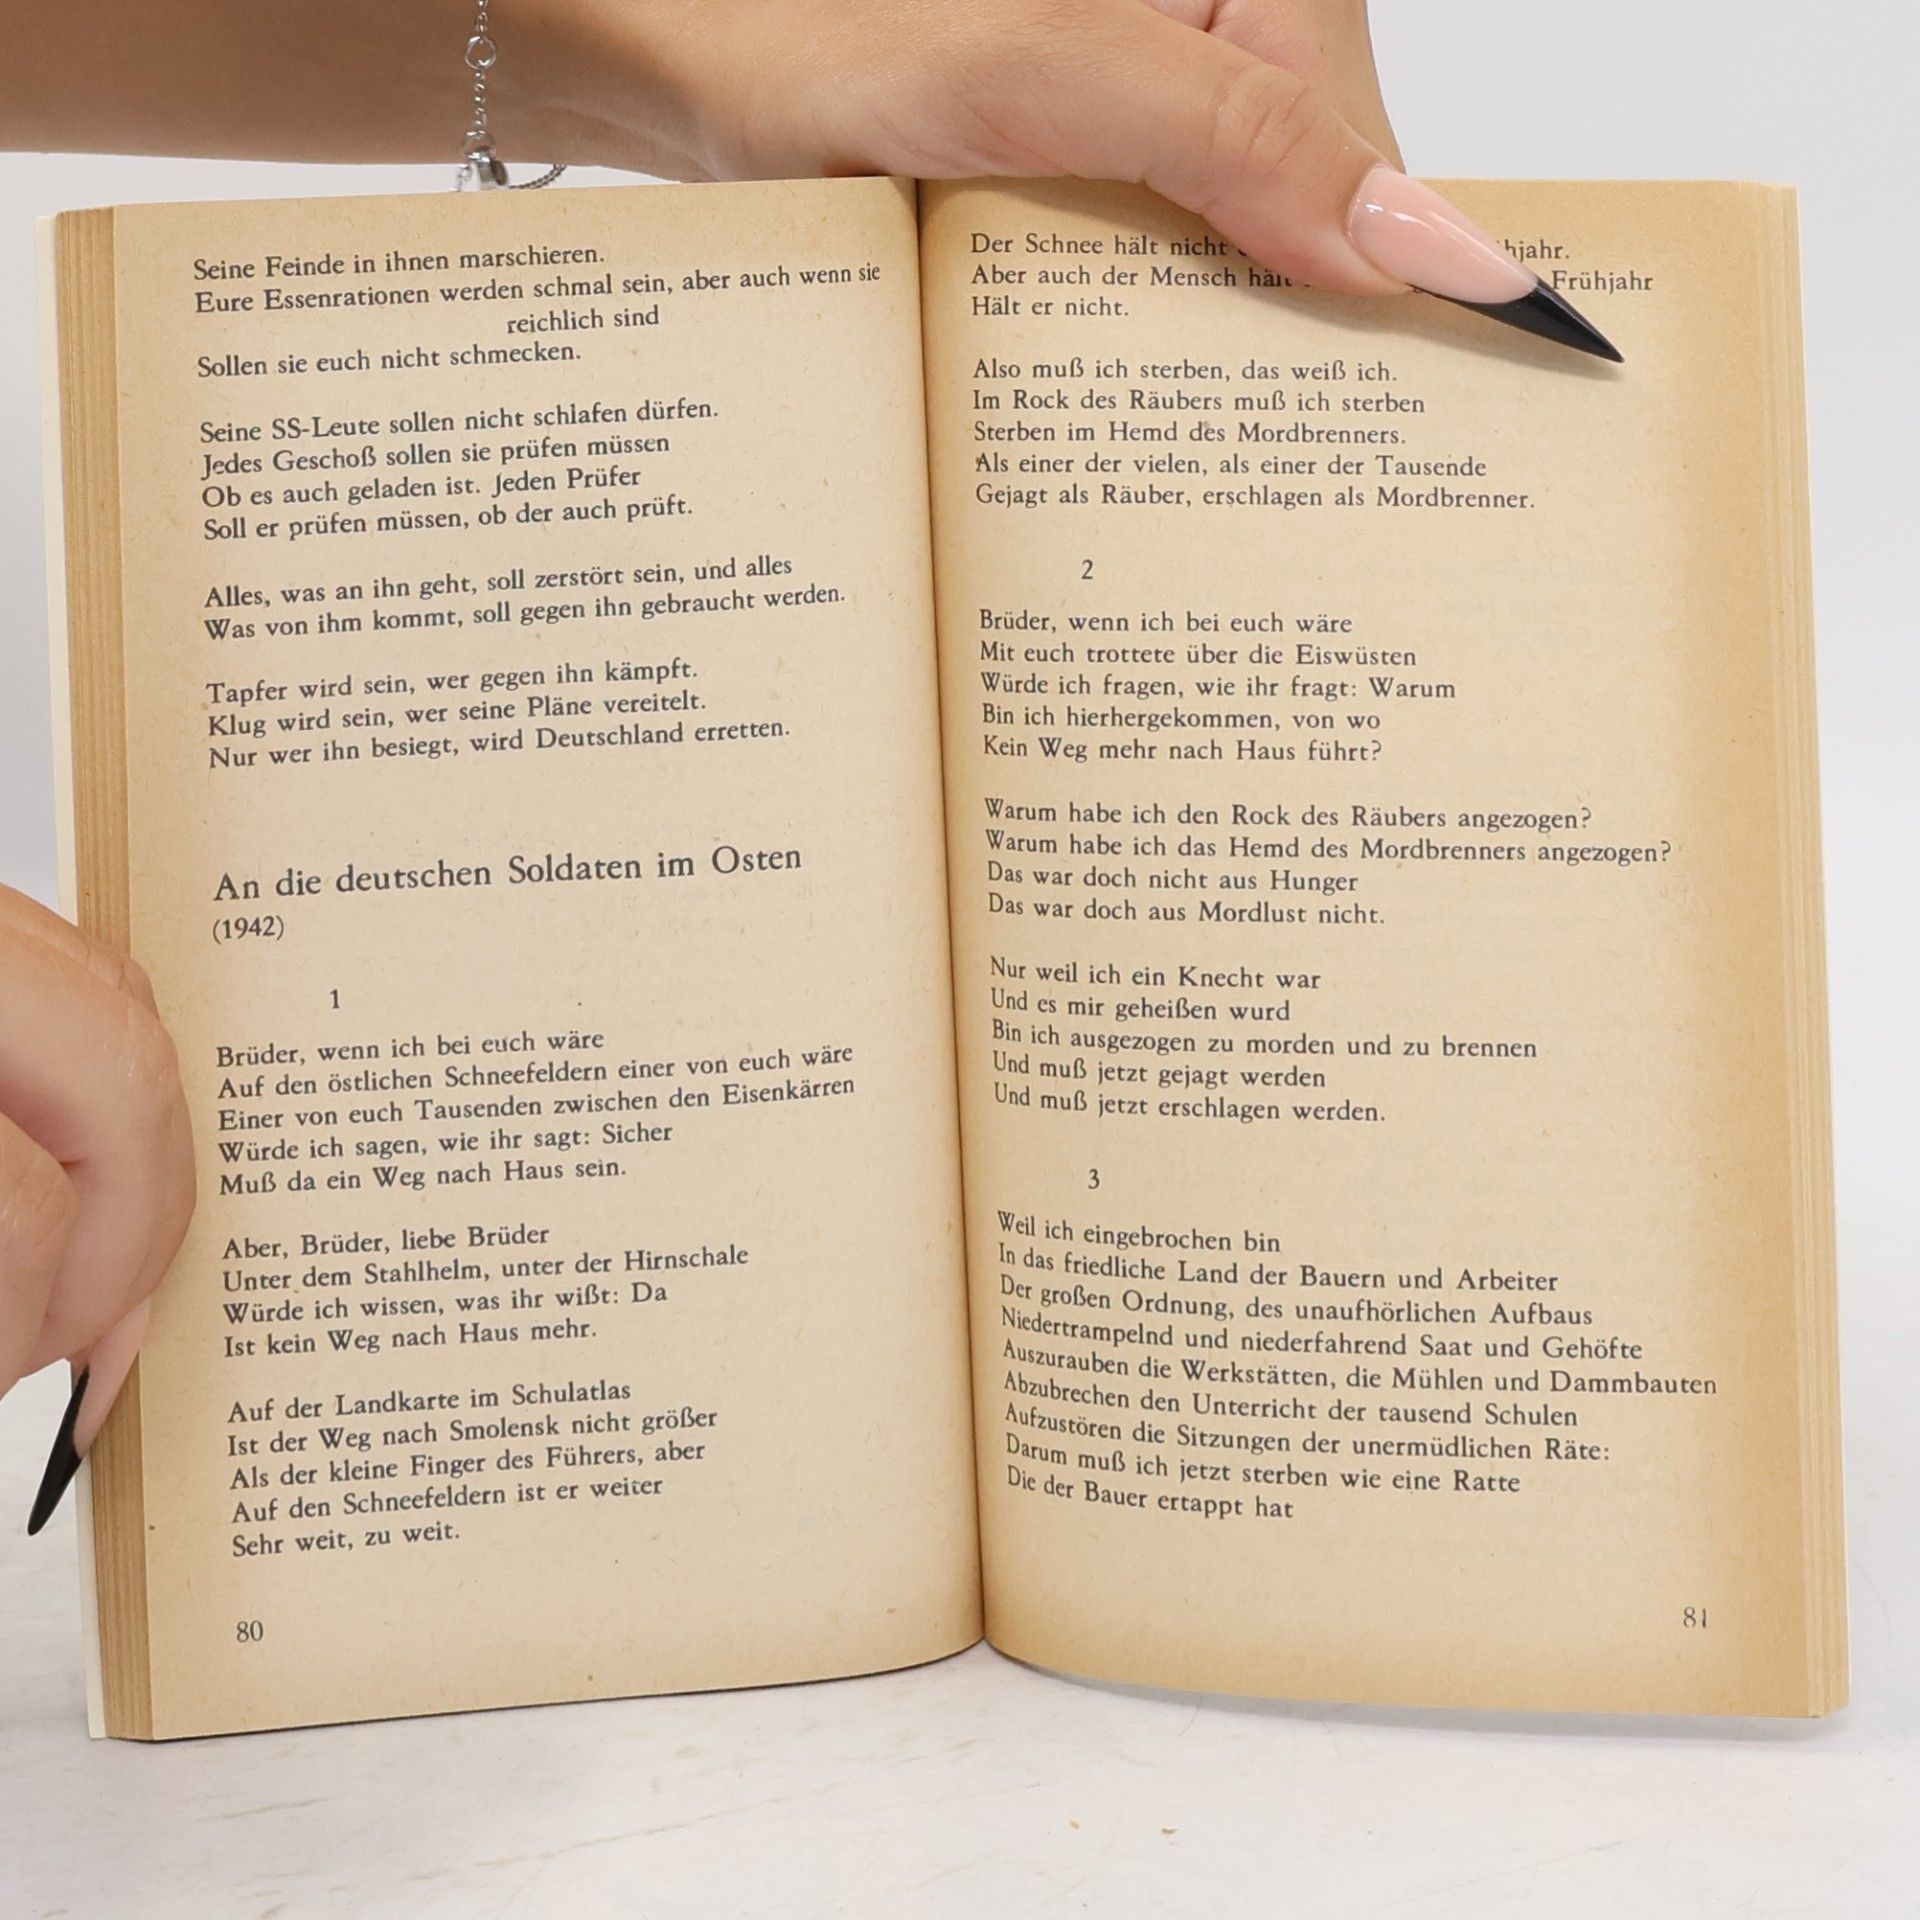 Seine Feinde in ihnen marschieren.
Eure Essenrationen werden schmal sein, aber auch wenn sie
reichlich sind
Sollen sie euch nicht schmecken.
Seine SS-Leute sollen nicht schlafen dürfen.
Jedes Geschoß sollen sie prüfen müssen
Ob es auch geladen ist. Jeden Prüfer
Soll er prüfen müssen, ob der auch prüft.
Alles, was an ihn geht, soll zerstört sein, und alles
Was von ihm kommt, soll gegen ihn gebraucht werden.
Tapfer wird sein, wer gegen ihn kämpft.
Klug wird sein, wer seine Pläne vereitelt.
Nur wer ihn besiegt, wird Deutschland erretten.
An die deutschen Soldaten im Osten
(1942)
1
Brüder, wenn ich bei euch wäre
Auf den östlichen Schneefeldern einer von euch wäre
Einer von euch Tausenden zwischen den Eisenkärren
Würde ich sagen, wie ihr sagt: Sicher
Muß da ein Weg nach Haus sein.
Aber, Brüder, liebe Brüder
Unter dem Stahlhelm, unter der Hirnschale
Würde ich wissen, was ihr wißt: Da
Ist kein Weg nach Haus mehr.
Auf der Landkarte im Schulatlas
Ist der Weg nach Smolensk nicht größer
Als der kleine Finger des Führers, aber
Auf den Schneefeldern ist er weiter
Sehr weit, zu weit.
80
Der Schnee hält nicht
Aber auch der Mensch hält Frühjahr
Hält er nicht.
Also muß ich sterben, das weiß ich.
Im Rock des Räubers muß ich sterben
Sterben im Hemd des Mordbrenners.
Als einer der vielen, als einer der Tausende
Gejagt als Räuber, erschlagen als Mordbrenner.
2
Brüder, wenn ich bei euch wäre
Mit euch trottete über die Eiswüsten
Würde ich fragen, wie ihr fragt: Warum
Bin ich hierhergekommen, von wo
Kein Weg mehr nach Haus führt?
Warum habe ich den Rock des Räubers angezogen?
Warum habe ich das Hemd des Mordbrenners angezogen?
Das war doch nicht aus Hunger
Das war doch aus Mordlust nicht.
Nur weil ich ein Knecht war
Und es mir geheißen wurd
Bin ich ausgezogen zu morden und zu brennen
Und muß jetzt gejagt werden
Und muß jetzt erschlagen werden.
3
Weil ich eingebrochen bin
In das friedliche Land der Bauern und Arbeiter
Der großen Ordnung, des unaufhörlichen Aufbaus
Niedertrampelnd und niederfahrend Saat und Gehöfte
Auszurauben die Werkstätten, die Mühlen und Dammbauten
Abzubrechen den Unterricht der tausend Schulen
Aufzustören die Sitzungen der unermüdlichen Räte:
Darum muß ich jetzt sterben wie eine Ratte
Die der Bauer ertappt hat
81